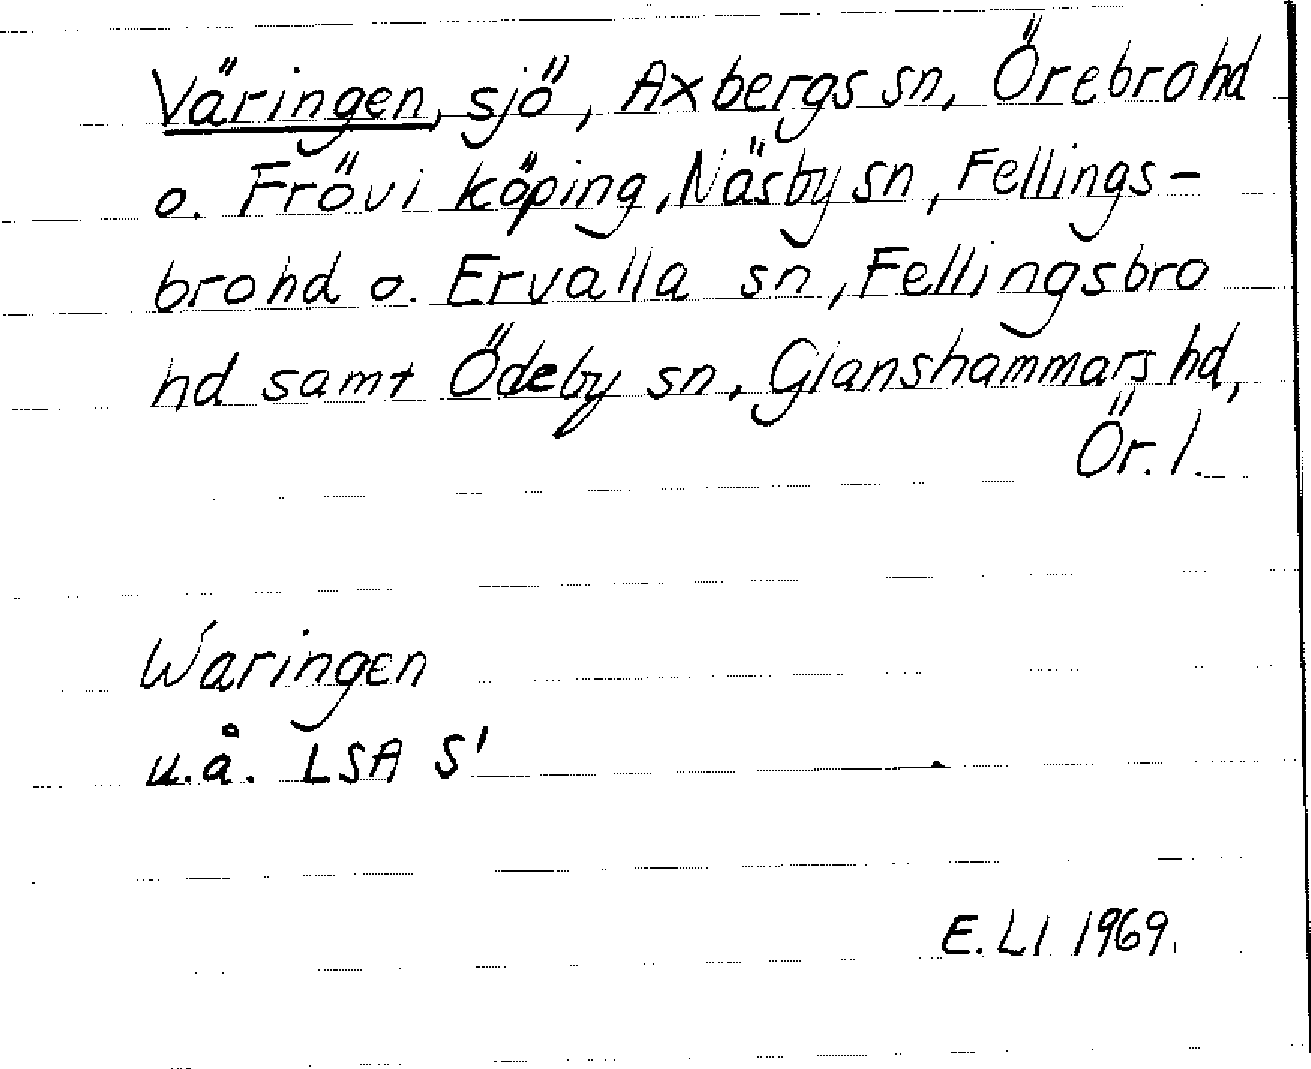 Väringen, sjö, Axbergs sn, Örebro hd
o. Frövi köping, Näsby sn, Fellings-
bro hd o. Ervalla sn, Fellingsbro
hd samt Ödeby sn, Glanshammars hd,
Ör. l.
Waringen
u.å. LSA S1
E. Ll 1969.